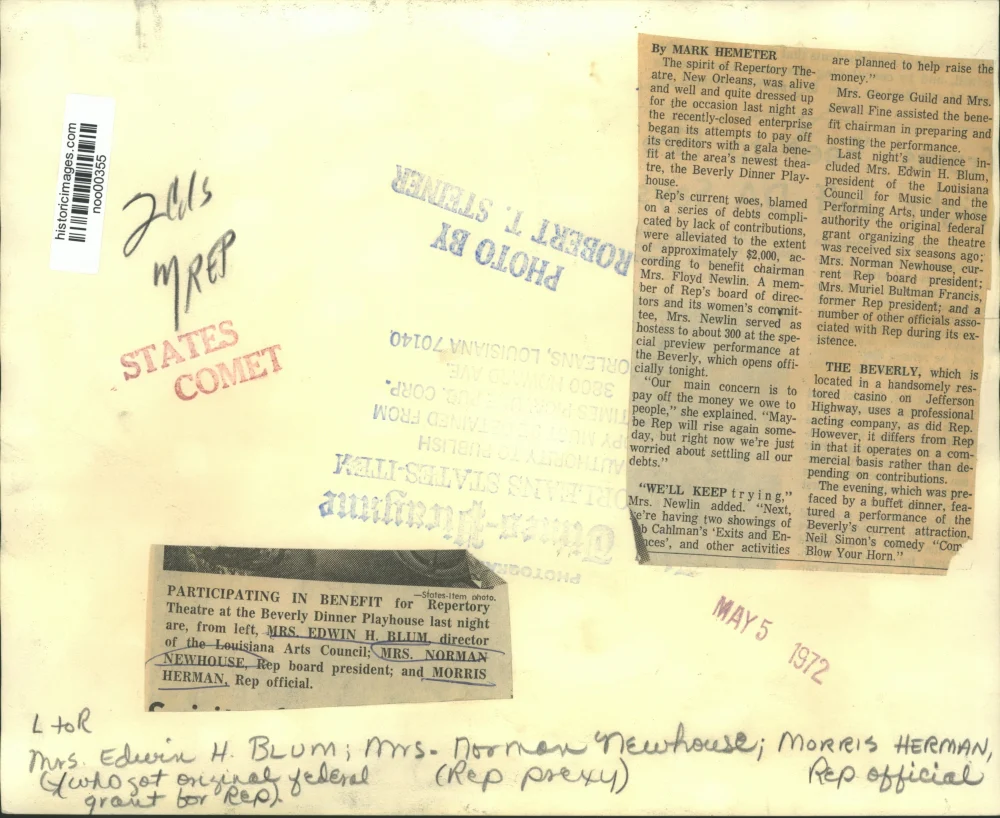 historicimages.com
noo00355
2 cols
M REP
STATES
COMET
PHOTO BY
ROBERT T. STEINER
PHOTOGRAPH
Times-Picayune
ORLEANS STATES-ITEM
AUTHORITY TO PUBLISH
OBTAINED FROM
PUB. CORP.
3800 HOWARD AVE.
ORLEANS, LOUISIANA 70140
By MARK HEMETER
The spirit of Repertory The-
atre, New Orleans, was alive
and well and quite dressed up
for the occasion last night as
the recently-closed enterprise
began its attempts to pay off
its creditors with a gala bene-
fit at the area's newest thea-
tre, the Beverly Dinner Play-
house.
Rep's current woes, blamed
on a series of debts compli-
cated by lack of contributions,
were alleviated to the extent
of approximately $2,000, ac-
cording to benefit chairman
Mrs. Floyd Newlin. A mem-
ber of Rep's board of direc-
tors and its women's commit-
tee, Mrs. Newlin served as
hostess to about 300 at the spe-
cial preview performance at
the Beverly, which opens offi-
cially tonight.
"Our main concern is to
pay off the money we owe to
people," she explained. "May-
be Rep will rise again some-
day, but right now we're just
worried about settling all our
debts."
"WE'LL KEEP trying,"
Mrs. Newlin added. "Next,
we're having two showings of
Cahlman's 'Exits and En-
nces', and other activities
are planned to help raise the
money."
Mrs. George Guild and Mrs.
Sewall Fine assisted the bene-
fit chairman in preparing and
hosting the performance.
Last night's audience in-
cluded Mrs. Edwin H. Blum,
president of the Louisiana
Council for Music and the
Performing Arts, under whose
authority the original federal
grant organizing the theatre
was received six seasons ago;
Mrs. Norman Newhouse, cur-
rent Rep board president;
Mrs. Muriel Bultman Francis,
former Rep president; and a
number of other officials asso-
ciated with Rep during its ex-
istence.
THE BEVERLY, which is
located in a handsomely res-
tored casino on Jefferson
Highway, uses a professional
acting company, as did Rep.
However, it differs from Rep
in that it operates on a com-
mercial basis rather than de-
pending on contributions.
The evening, which was pre-
faced by a buffet dinner, fea-
tured a performance of the
Beverly's current attraction,
Neil Simon's comedy "Com
Blow Your Horn."
—States-Item photo.
PARTICIPATING IN BENEFIT for Repertory
Theatre at the Beverly Dinner Playhouse last night
are, from left, MRS. EDWIN H. BLUM, director
of the Louisiana Arts Council; MRS. NORMAN
NEWHOUSE, Rep board president; and MORRIS
HERMAN, Rep official.
MAY 5 1972
L to R
Mrs. Edwin H. BLUM; Mrs. Norman Newhouse; MORRIS HERMAN,
(who got original federal (Rep prexy) Rep official
grant for Rep).